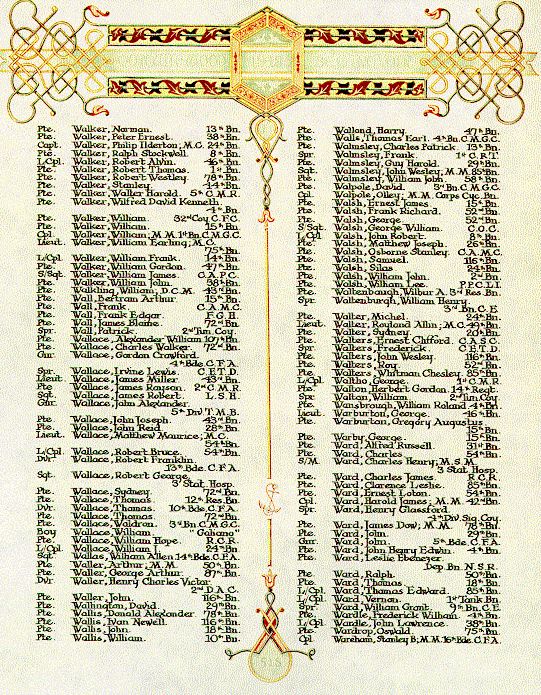 Pte. Walker, Norman. 13th Bn.
Pte. Walker, Peter Ernest. 38th Bn.
Capt. Walker, Philip Ilderton; M.C. 24th Bn.
Pte. Walker, Ralph Stockwell. 8th Bn.
L/Cpl. Walker, Robert Alvin. 46th Bn.
Pte. Walker, Robert Thomas. 1st Bn.
Pte. Walker, Robert Westley. 78th Bn.
Pte. Walker, Stanley. 44th Bn.
Pte. Walker, Walter Harold. 5th C.M.R.
Pte. Walker, Wilfred David Kenneth.
4th Bn.
Pte. Walker, William. 32nd Coy. C.F.C.
Pte. Walker, William. 15th Bn.
Cpl. Walker, William; M.M. 1st Bn. C.M.G.C.
Lieut. Walker, William Earling; M.C.
75th Bn.
L/Cpl. Walker, William Frank. 14th Bn.
Pte. Walker, William Gordon. 47th Bn.
S/Sgt. Walker, William James. C.A.P.C.
Pte. Walker, William John. 38th Bn.
Pte. Walkling, William; D.C.M. 43rd Bn.
Pte. Wall, Bertram Arthur. 15th Bn.
Pte. Wall, Frank. C.A.M.C.
Pte. Wall, Frank Edgar. F.G.H.
Pte. Wall, James Blaine. 72nd Bn.
Spr. Wall, Patrick. 2nd Tun. Coy.
Pte. Wallace, Alexander William. 107th Bn.
Pte. Wallace, Charles Walker. 72nd Bn.
Gnr. Wallace, Gordon Crawford.
4th Bde. C.F.A.
Spr. Wallace, Irvine Lewis. C.E.T.D.
Lieut. Wallace, James Miller. 43rd Bn.
Pte. Wallace, James Rayson. 2nd C.M.R.
Sgt. Wallace, James Robert. L.S.H.
Gnr. Wallace, John Alexander.
5th Div. T.M.B.
Pte. Wallace, John Joseph. 43rd Bn.
Pte. Wallace, John Reid. 28th Bn.
Lieut. Wallace, Matthew Maurice; M.C.
54th Bn.
L/Cpl. Wallace, Robert Bruce. 54th Bn.
Dvr. Wallace, Robert Franklin.
13th Bde. C.F.A.
Sgt. Wallace, Robert George.
3rd Stat. Hosp.
Pte. Wallace, Sydney. 72nd Bn.
Pte. Wallace, Thomas. 12th Res. Bn.
Dvr. Wallace, Thomas. 10th Bde. C.F.A.
Pte. Wallace, Thomas. 72nd Bn.
Pte. Wallace, Waldron. 3rd Bn. C.M.G.C.
Boy Wallace, William. "Galiano"
Pte. Wallace, William Hope. R.C.R.
L/Cpl. Wallace, William J. 24th Bn.
Sgt. Wallas, William Allen. 14th Bde. C.F.A.
Pte. Waller, Arthur; M.M. 50th Bn.
Pte. Waller, George Arthur. 87th Bn.
Dvr. Waller, Henry Charles Victor.
2nd D.A.C.
Pte. Waller, John. 116th Bn.
Pte. Wallington, David. 29th Bn.
Pte. Wallis, Donald Alexander. 78th Bn.
Pte. Wallis, Ivan Newell. 116th Bn.
Pte. Wallis, John. 18th Bn.
Pte. Wallis, William. 10th Bn.
Pte. Wallond, Harry. 47th Bn.
Pte. Walls, Thomas Earl. 4th Bn. C.M.G.C.
Pte. Walmsley, Charles Patrick. 13th Bn.
Spr. Walmsley, Frank. 1st C.R.T.
Pte. Walmsley, Guy Harold. 29th Bn.
Sgt. Walmsley, John Wesley; M.M. 85th Bn.
Pte. Walmsley, William John. 58th Bn.
Pte. Walpole, David. 3rd Bn. C.M.G.C.
Cpl. Walpole, Olley; M.M. Corps Cyc. Bn.
Pte. Walsh, Ernest James. 15th Bn.
Pte. Walsh, Frank Richard. 52nd Bn.
Pte. Walsh, George. 52nd Bn.
S/Sgt. Walsh, George William. C.O.C.
L/Cpl. Walsh, John Robert. 8th Bn.
Pte. Walsh, Matthew Joseph. 26th Bn.
Pte. Walsh, Osborne Stanley. C.A.M.C.
Pte. Walsh, Samuel. 116th Bn.
Pte. Walsh, Silas. 24th Bn.
Pte. Walsh, William John. 2nd Bn.
Pte. Walsh, William Lee. P.P.C.L.I.
Pte. Waltenbaugh, Wilbur A. 3rd Res. Bn.
Spr. Waltenburgh, William Henry.
3rd Bn. C.E.
Pte. Walter, Michel. 24th Bn.
Lieut. Walter, Rayland Allin; M.C. 49th Bn.
Pte. Walter, Sydney. 20th Bn.
Pte. Walters, Ernest Clifford. C.A.S.C.
Spr. Walters, Frederick. C.E.T.D.
Pte. Walters, John Wesley. 116th Bn.
Pte. Walters, Roy. 52nd Bn.
Pte. Walters, Whitman Chesley. 85th Bn.
L/Cpl. Waltho, George. 1st C.M.R.
Pte. Walton, Herbert Gordon. 14th Regt.
Spr. Walton, William. 2nd Tun. Coy.
Pte. Wansbrough, William Roland. 4th Bn.
Lieut. Warburton, George. 46th Bn.
Pte. Warburton, Gregory Augustus.
15th Bn.
Pte. Warby, George. 15th Bn.
Pte. Ward, Alfred Russell. 31st Bn.
Pte. Ward, Charles. 54th Bn.
S/M. Ward, Charles Henry; M.S.M.
3rd Stat. Hosp.
Pte. Ward, Charles James. R.C.R.
Pte. Ward, Clarence Leslie. 85th Bn.
Pte. Ward, Ernest Loton. 54th Bn.
Cpl. Ward, Harold James; M.M. 42nd Bn.
Spr. Ward, Henry Glassford.
4th Div. Sig. Coy.
Pte. Ward, James Dow; M.M. 78th Bn.
Pte. Ward, John. 29th Bn.
Gnr. Ward, John. 5th Bde. C.F.A.
Pte. Ward, John Henry Edwin. 4th Bn.
Pte. Ward, Leslie Ebenezer.
Dep. Bn. N.S.R.
Pte. Ward, Ralph. 50th Bn.
Pte. Ward, Thomas. 18th Bn.
L/Cpl. Ward, Thomas Edward. 85th Bn.
L/Cpl. Ward, Vernon. 1st Tank Bn.
Spr. Ward, William Grant. 9th Bn. C.E.
Pte. Wardle, Frederick William. 4th Bn.
L/Cpl. Wardle, John Lawrence. 38th Bn.
Pte. Wardrop, Oswald. 75th Bn.
Cpl. Wareham, Stanley B; M.M. 16th Bde. C.F.A.
518